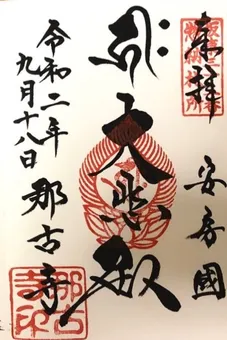 奉拝
安房國
大悲殿
令和二年
九月十八日
那古寺
那古
寺印